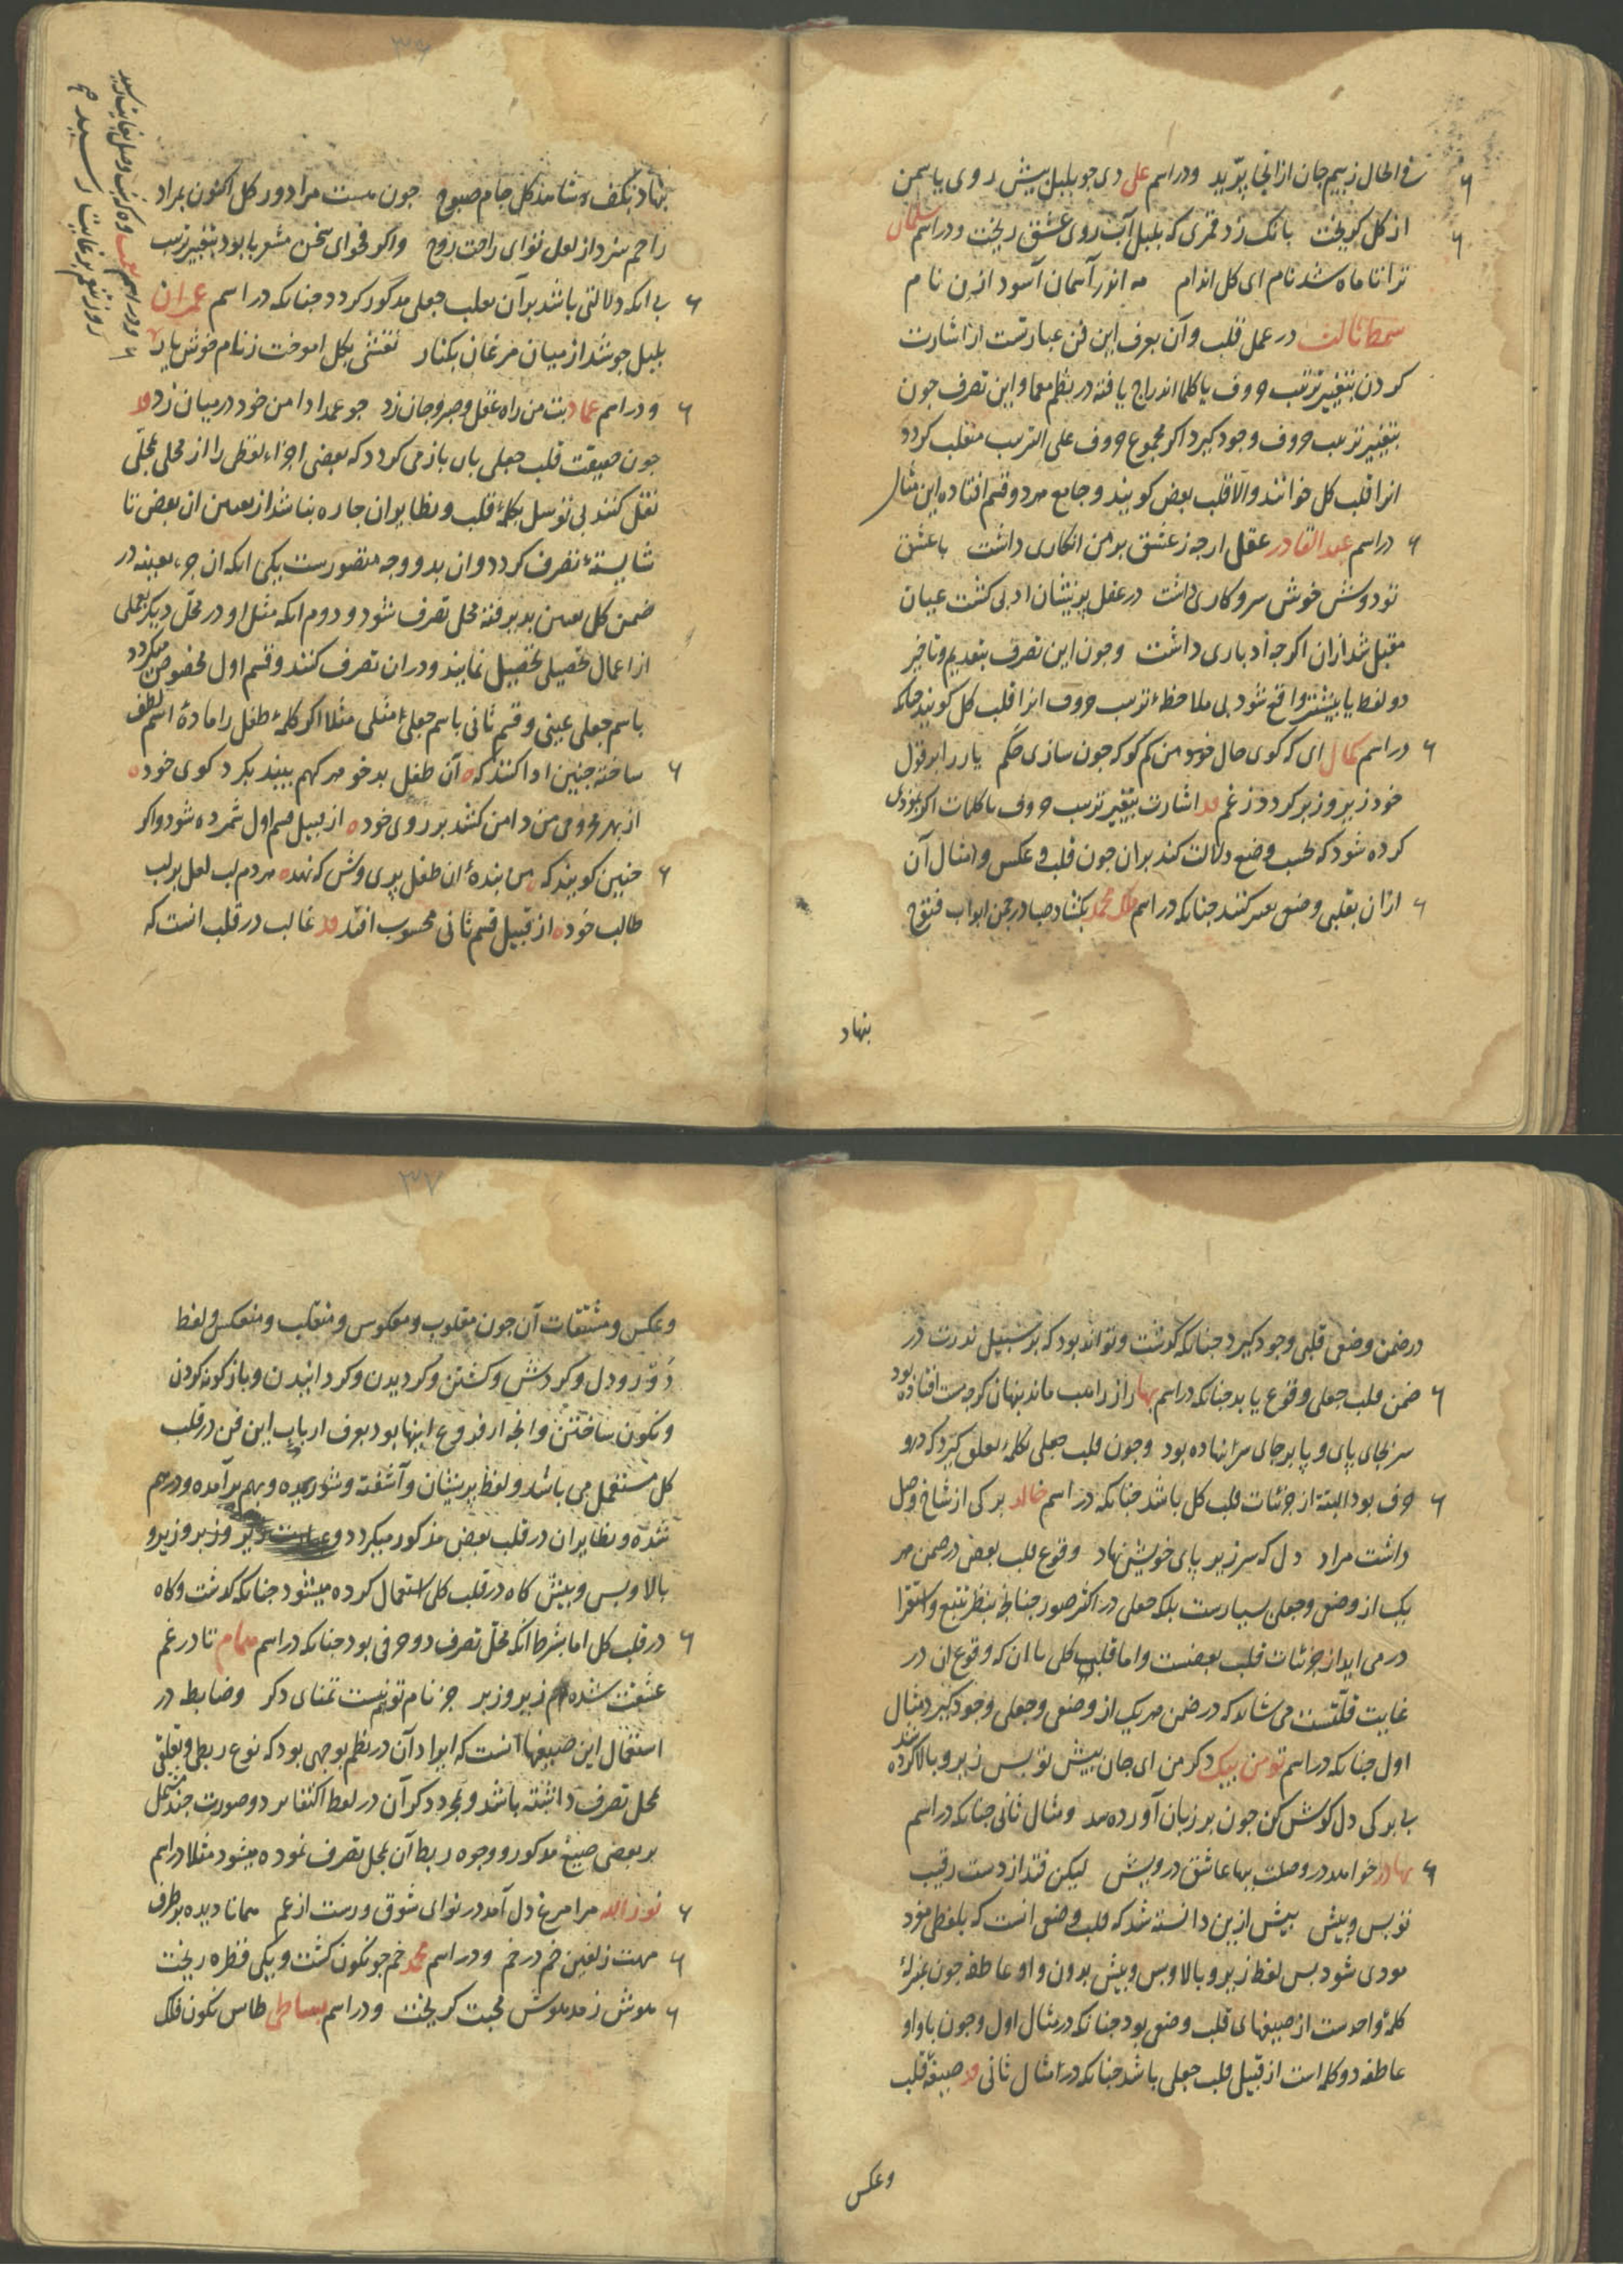 فی الحال ز بیم جان از آنجا بپرید ودر اسم علی دی چو بلبل پیش روی یاسمن
از گل گریخت بانک زد قمری که بلبل آب روی عشق ریخت ودر اسم سلمان
ترا تا ماه شد نام ای گل اندام مه انور آسمان آسود ازین نام
سمط ثالث در عمل قلب وآن بعرف این فن عبارتست از اشارت
کردن بتغییر ترتیب حروف یا کلما اندراج یافته در نظم معما واین تصرف چون
بتغییر ترتیب حروف وجود گیرد اکر مجموع حروف علی الترتیب منقلب کردد
انرا قلب کل خوانند والا قلب بعض کویند وجامع هر دو قسم افتاده این مثال
در اسم عبد القادر عقل ارچه ز عشق بر من انکاری داشت با عشق
تو دوش خوش سر وکاری داشت در عقل پریشان ادبی کشت عیان
مقبل شد ازان اکرچه ادباری داشت وچون این تصرف بتقدیم وتاخیر
دو لفظ یا بیشتر واقع شود بی ملاحظهٔ ترتیب حروف انرا قلب کل کویند چنانکه
در اسم کمال ای که کوی حال خود من کم کو که چون سازی حکم یار را بر قول
خود زیر وزبر کردد ز غم اشارت بتغییر ترتیب حروف یا کلمات اکر بمودی
کرده شود که بحسب وضع دلالت کند بران چون قلب وعکس وامثال آن
ازان بقلب وضعی تعبیر کنند چنانکه در اسم ملک محمد بکشاد صبا در چمن ابواب فتوح
بنهاد
بنهاد بکف شاهد کل جام صبوح چون هست مرا دور کل اکنون بمراد
راحم سزد از لعل توای راحت روح واکر فحوای سخن مشعر با بود بتغییر ترتیب
بی آنکه دلالتی باشد بر آن بقلب جعلی مذکور کردد چنانکه در اسم عمران
بلبل چو شد از میان مرغان بکنار نقشی بکل اموخت ز نام خوش یار
ودر اسم عماد بت من راه عقل وصبر وجان زد چو عمدا دامن خود در میان زد
چون حقیقت قلب جعلی بان باز می کردد که بعضی اجزاء لفظی را از محلی بمحلی
نقل کنند بی توسل بکلمهٔ قلب ونظایر ان چاره نباشد از تعیین ان بعض تا
شایستهٔ تصرف کردد وان بدو وجه متصورست یکی انکه ان جزء بعینه در
ضمن کل تعیین پذیرفته محل تصرف شود ودوم انکه مثل او در محل دیکر بعملی
از اعمال تحصیلی تحصیل نمایند ودران تصرف کنند وقسم اول مخصوص میکردد
باسم جعلی عینی وقسم ثانی باسم جعلی مثلی مثلا اکر کلمهٔ طفل را مادهٔ اسم لطف
ساخته چنین ادا کنند که آن طفل بدخو هر کهم بیند بکرد کوی خود
از بهر محرومی من دامن کشد بر روی خود از قبیل قسم اول شمرده شود واکر
چنین کویند که من بندهٔ ان طفل پری وش که نهد هر دم لب لعل بر لب
طالب خود از قبیل قسم ثانی محسوب افتد غالب در قلب انست که
ودر اسم
روز غم بغایت رسید
۳۶
در ضمن وضعی قلبی وجود کیرد چنانکه کذشت وتواند بود که بر سبیل ندرت در
ضمن قلب جعلی وقوع یابد چنانکه در اسم بهار از لب ماند پنهان کرچه مست افتاده بود
سر بجای پای وپا بر جای سر انهاده بود وچون قلب جعلی بکلمهٔ تعلق کیرد که درو
حرف بود البته از جزئیات قلب کل باشد چنانکه در اسم خالد برکی از شاخ وصل
داشت مراد دل که سر زیر پای خویش نهاد وقوع قلب بعض در ضمن هر
یک از وضعی وجعلی بسیارست بلکه جعلی در اکثر صور چنانچ بنظر تتبع واستقرا
در می اید از جزئیات قلب بعضست واما قلب کل با ان که وقوع ان در
غایت قلتست می شاید که در ضمن هر یک از وضعی وجعلی وجود کیرد مثال
اول چنانکه در اسم تومن بیک ذکر من ای جان پیش تو پس زیر وبالا کرده شد
بی برکی دل کوش کن چون بر زبان آورده شد ومثال ثانی چنانکه در اسم
بهادر خواهد در وصلت بها عاشق درویش لیکن فتد از دست رقیب
تو پس وپیش پیش ازین دانسته شد که قلب وضعی انست که بلفظی مفرد
مودی شود پس لفظ زیر وبالا وپس وپیش بدون واو عاطفه چون بمنزلهٔ
کلمهٔ واحد ست از صیغهای قلب وضعی بود چنانکه در مثال اول وچون با واو
عاطفه دو کلمه است از قبیل قلب جعلی باشد چنانکه در امثال ثانی صیغهٔ قلب
وعکس
۳۷
وعکس ومشتقات آن چون مقلوب ومعکوس ومنقلب ومنعکس ولفظ
دَور ودل وکردش وکشتن وکردیدن وکردانیدن وباز کونه کردن
ونکون ساختن وانچه از فروع اینها بود بعرف ارباب این فن در قلب
کل مستعمل می باشد ولفظ پریشان وآشفته وشوریده وبهم بر آمده ودرهم
شده ونظایر ان در قلب بعض مذکور میکردد وزیر وزبر وزیر و
بالا وپس وپیش کاه در قلب کل استعمال کرده میشود چنانکه کذشت وکاه
در قلب کل اما بشرط آنکه محل تصرف دو حرفی بود چنانکه در اسم همام تا در غم
عشقت شده ام زیر وزبر جز نام توم نیست تمنای دکر وضابط در
استعمال این صیغها آنست که ایراد آن در نظم بوجهی بود که نوع ربطی وتعلقی
بمحل تصرف داشته باشد وبمجرد ذکر آن در لفظ اکتفا نرود وصورت چند مشتمل
بر بعضی صیغ مذکور ووجوه ربط آن بمحل تصرف نموده میشود مثلا در اسم
نور الله مرا مرغ دل آمد در نوای شوق ورست از غم همانا دیده بر طرف
مهت زلفین خم در خم ودر اسم محمد خم چو نکون کشت ویکی قطره ریخت
هوش ز مدهوش محبت کریخت ودر اسم بساطی طاس نکون فلک